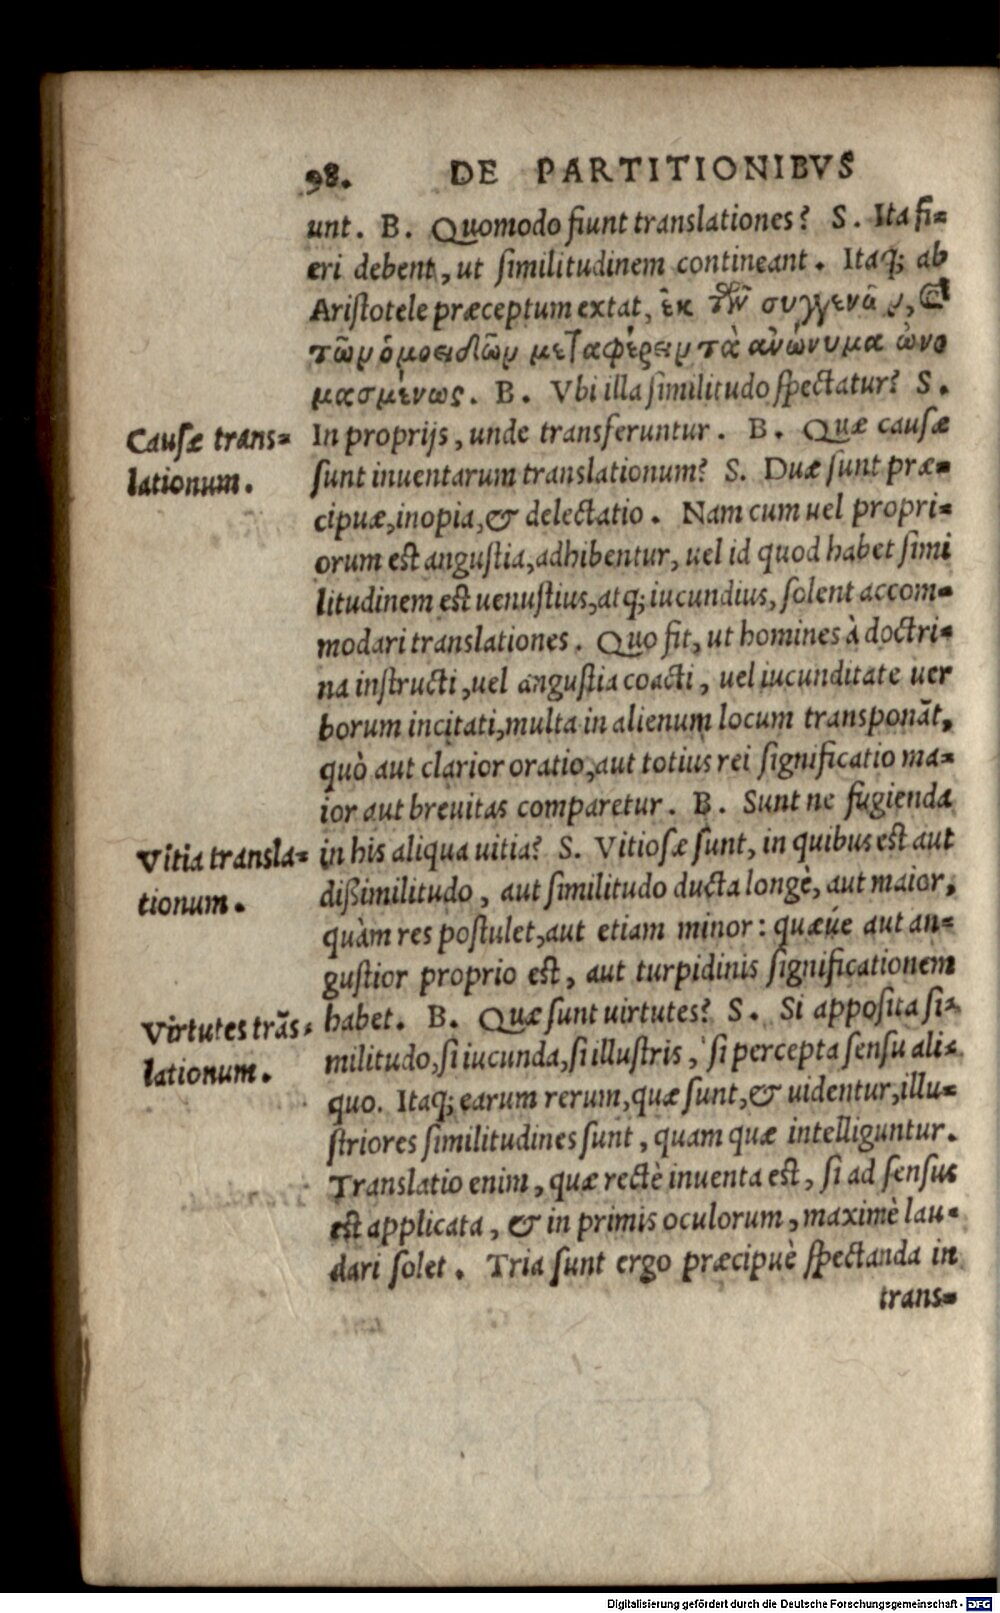 98. DE PARTITIONIBVS
unt. B. Quomodo fiunt translationes? S. Ita fi=
eri debent, ut similitudinem contineant. Itaq; ab
Aristotele præceptum extat, ἐκ τῶν συγγενῶν, &
τῶν ὁμοειδῶν μεταφέρειν τὰ ἀνώνυμα ὠνο
μασμένως. B. Vbi illa similitudo spectatur? S.
Causæ trans=
lationum.
In proprijs, unde transferuntur. B. Quæ causæ
sunt inuentarum translationum? S. Duæ sunt præ=
cipuæ, inopia, & delectatio. Nam cum uel propri=
orum est angustia, adhibentur, uel id quod habet simi
litudinem est uenustius, atq; iucundius, solent accom=
modari translationes. Quo fit, ut homines à doctri=
na instructi, uel angustia coacti, uel iucunditate uer
borum incitati, multa in alienum locum transponãt,
quò aut clarior oratio, aut totius rei significatio ma=
ior aut breuitas comparetur. B. Sunt ne fugienda
Vitia transla=
tionum.
in his aliqua uitia? S. Vitiosæ sunt, in quibus est aut
dißimilitudo, aut similitudo ducta longè, aut maior,
quàm res postulet, aut etiam minor: quæúe aut an=
gustior proprio est, aut turpidinis significationem
Virtutes trãs=
lationum.
habet. B. Quæ sunt uirtutes? S. Si apposita si=
militudo, si iucunda, si illustris, si percepta sensu ali=
quo. Itaq; earum rerum, quæ sunt, & uidentur, illu=
striores similitudines sunt, quam quæ intelliguntur.
Translatio enim, quæ rectè inuenta est, si ad sensus
est applicata, & in primis oculorum, maximè lau=
dari solet. Tria sunt ergo præcipuè spectanda in
trans=
Digitalisierung gefördert durch die Deutsche Forschungsgemeinschaft - DFG